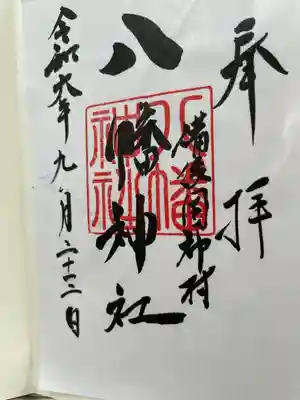 奉拝
備後国神村
八幡神社
八幡神社
令和六年九月二十二日